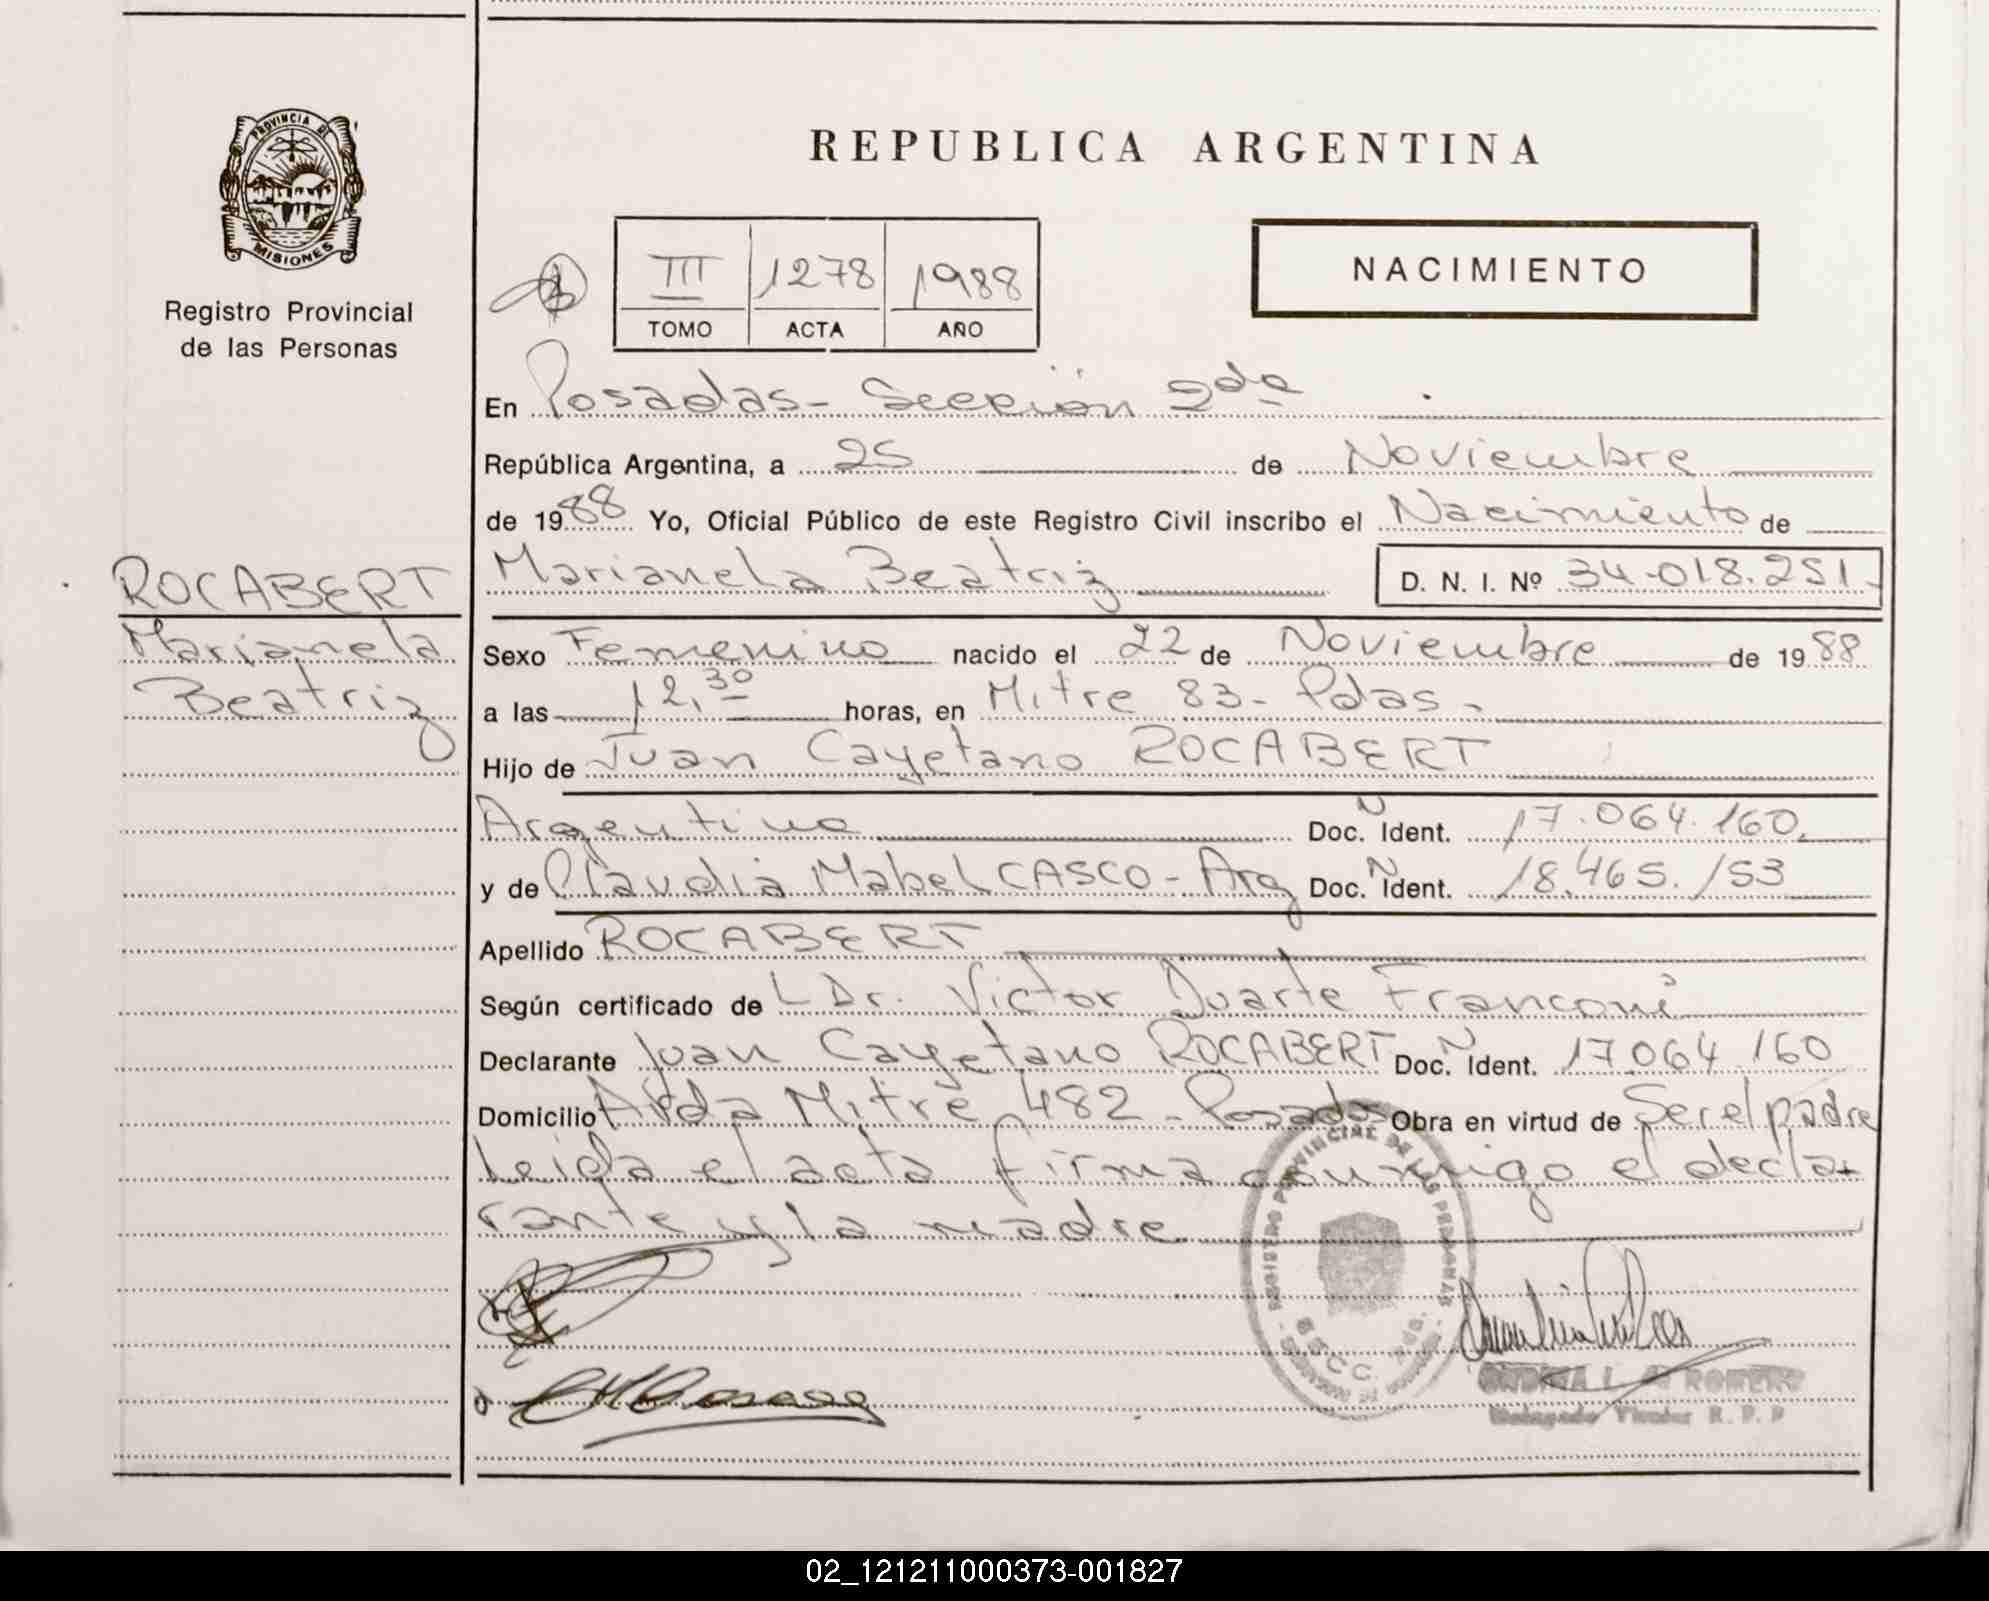 PROVINCIA DE
MISIONES
Registro Provincial
de las Personas
REPUBLICA ARGENTINA
III 1278 1988
TOMO ACTA AÑO
NACIMIENTO
En Posadas - Sección 2da
República Argentina, a 25 de Noviembre
de 1988 Yo, Oficial Público de este Registro Civil inscribo el Nacimiento de
ROCABERT
Marianela Beatriz D. N. I. Nº 34.018.251.-
Marianela
Beatriz
Sexo Femenino nacido el 22 de Noviembre de 1988
a las 12,30 horas, en Mitre 83 - Pdas.
Hijo de Juan Cayetano ROCABERT
Argentino Doc. N Ident. 17.064.160.
y de Claudia Mabel CASCO - Arg Doc. N Ident. 18.465.153
Apellido ROCABERT
Según certificado de L Dr. Victor Duarte Franconi
Declarante Juan Cayetano ROCABERT Doc. N Ident. 17.064.160
Domicilio Avda Mitre 482 - Posadas Obra en virtud de Ser el padre
Leida el acta firma conmigo el decla-
rante y la madre
REGISTRO PROVINCIAL DE LAS PERSONAS
ROMERO
R. P. P
02_121211000373-001827